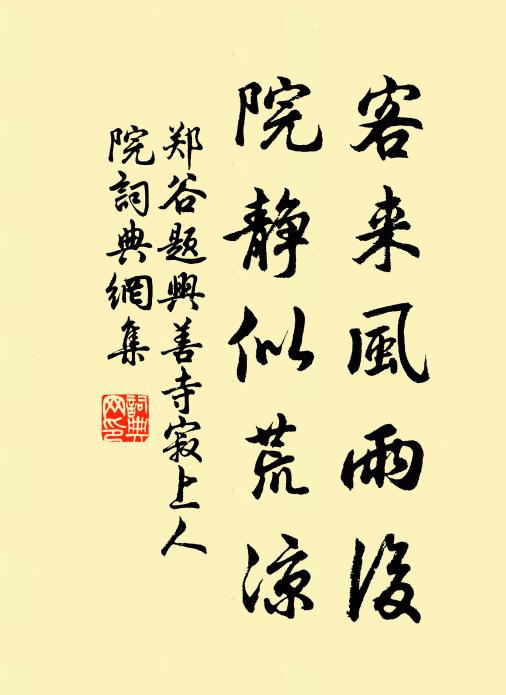 客来風雨後
院静似荒凉
郑谷题興善寺寂上人
院詞典網集
詞典
网印